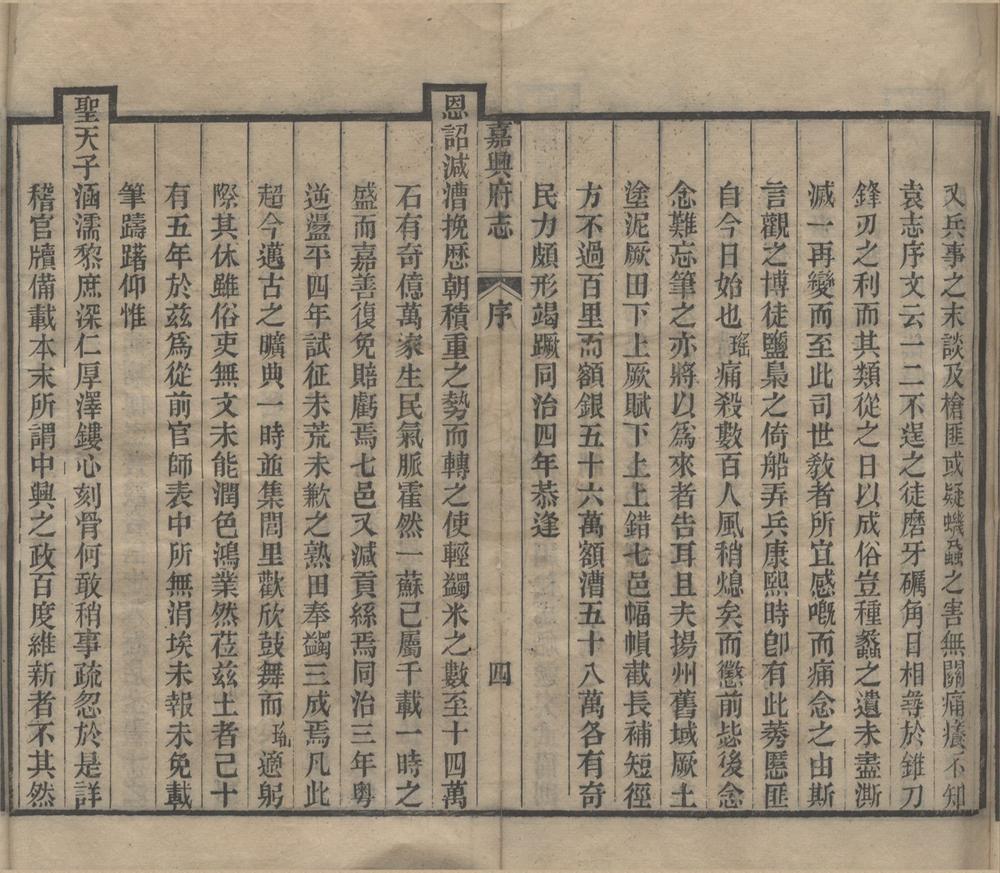 又兵事之末談及槍匪或疑蟣蝨之害無關痛癢不知
袁志序文云一二不逞之徒磨牙礪角日相尋於錐刀
鋒刃之利而其類從之日以成俗豈種蠡之遺未盡澌
滅一再變而至此司世教者所宜感嘅而痛念之由斯
言觀之博徒鹽梟之倚船弄兵康熙時卽有此莠慝匪
自今日始也瑤痛殺數百人風稍熄矣而懲前毖後念
念難忘筆之亦將以爲來者告耳且夫揚州舊域厥土
塗泥厥田下上厥賦下上上錯七邑幅幀截長補短徑
方不過百里而額銀五十六萬額漕五十八萬各有奇
民力頗形竭蹶同治四年恭逢
嘉興府志 序 四
恩詔減漕挽歷朝積重之勢而轉之使輕蠲米之數至十四萬
石有奇億萬家生民氣脈霍然一蘇已屬千載一時之
盛而嘉善復免賠虧焉七邑又減貢絲焉同治三年粵
逆盪平四年試征未荒未歉之熟田奉蠲三成焉凡此
超今邁古之曠典一時並集閭里歡欣鼓舞而瑤適躬
際其休雖俗吏無文未能潤色鴻業然莅茲土者已十
有五年於茲爲從前官師表中所無涓埃未報未免載
筆躊躇仰惟
聖天子涵濡黎庶深仁厚澤鏤心刻骨何敢稍事疏忽於是詳
稽官牘備載本末所謂中興之政百度維新者不其然